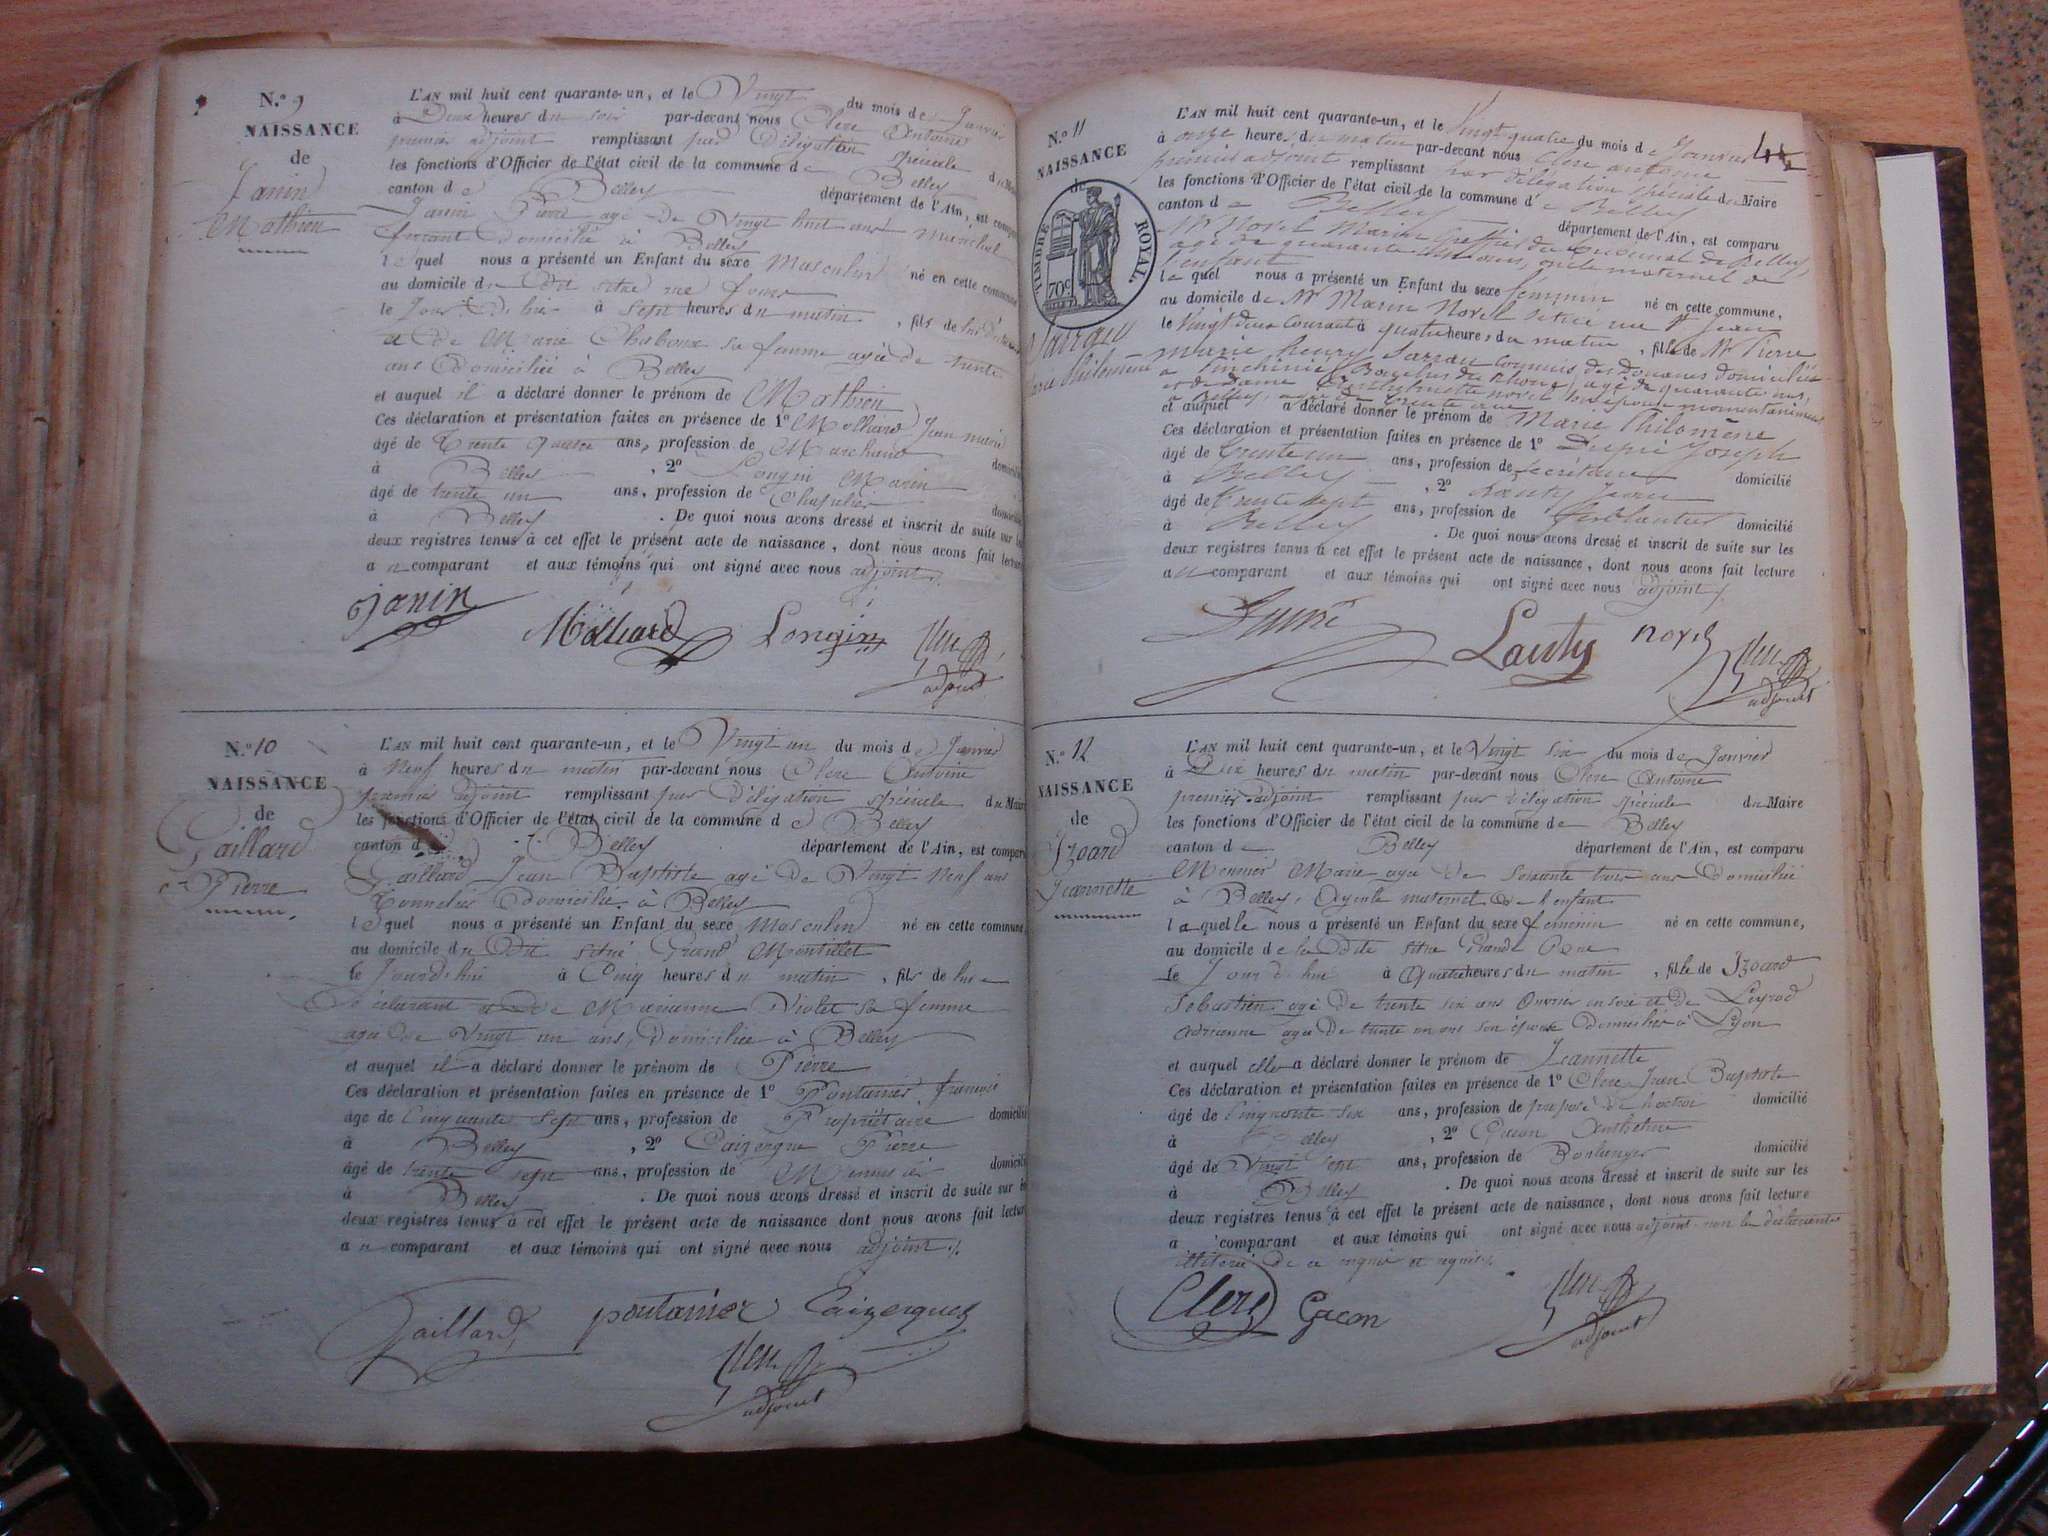 N.º 9
NAISSANCE
de
Janin
Mathieu
L'AN mil huit cent quarante-un, et le Vingt du mois de Janvier
à Deux heures du soir par-devant nous Clerc Antoine
premier adjoint remplissant par Délégation spéciale du
les fonctions d'Officier de l'état civil de la commune de Belley
canton de Belley département de l'Ain, est comparu
Janin Pierre agé de Vingt huit ans Maréchal
ferrant Domicilié à Belley
lequel nous a présenté un Enfant du sexe Masculin né en cette commune
au domicile du Dit situé rue
le Jour d'hier à Sept heures du matin, fils de lui
et de Marie Chaboux sa femme agée de trente
ans Domiciliée à Belley
et auquel il a déclaré donner le prénom de Mathieu
Ces déclaration et présentation faites en présence de 1º Molliard Jean marie
âgé de Trente quatre ans, profession de Marchand domicilié
à Belley, 2º Longin Marin
âgé de trente un ans, profession de Chapelier domicilié
à Belley. De quoi nous avons dressé et inscrit de suite sur les
deux registres tenus à cet effet le présent acte de naissance, dont nous avons fait lecture
au comparant et aux témoins qui ont signé avec nous adjoint.
Janin Molliard Longin Clerc
adjoint
N.º 10
NAISSANCE
de
Gaillard
Pierre
L'AN mil huit cent quarante-un, et le Vingt un du mois de Janvier
à Neuf heures du matin par-devant nous Clerc Antoine
premier adjoint remplissant par Délégation spéciale du Maire
les fonctions d'Officier de l'état civil de la commune de Belley
canton de Belley département de l'Ain, est comparu
Gaillard Jean Baptiste agé de Vingt Neuf ans
Tonnelier Domicilié à Belley
lequel nous a présenté un Enfant du sexe Masculin né en cette commune,
au domicile du Dit situé Grand Montillet
le Jourd'hui à Cinq heures du matin, fils de lui
Déclarant et de Marianne Violet sa femme
agée de Vingt un ans, Domiciliée à Belley
et auquel il a déclaré donner le prénom de Pierre
Ces déclaration et présentation faites en présence de 1º Pontanier françois
âgé de Cinquante sept ans, profession de Propriétaire domicilié
à Belley, 2º Caizergue Pierre
âgé de trente sept ans, profession de Menuisier domicilié
à Belley. De quoi nous avons dressé et inscrit de suite sur les
deux registres tenus à cet effet le présent acte de naissance dont nous avons fait lecture
au comparant et aux témoins qui ont signé avec nous adjoint.
Gaillard pontanier Caizergues
Clerc
adjoint
N.º 11
NAISSANCE
de
TIMBRE ROYAL
70c
Philomène
L'AN mil huit cent quarante-un, et le Vingt quatre du mois de Janvier
à onze heures du matin par-devant nous Clerc antoine
premier adjoint remplissant par délégation spéciale du Maire
les fonctions d'Officier de l'état civil de la commune de Belley
canton de Belley département de l'Ain, est comparu
Mr Novel Marin Greffier du tribunal de Belley,
agé de quarante ans, oncle maternel de
l'enfant
lequel nous a présenté un Enfant du sexe feminin né en cette commune,
au domicile de Mr Marin Novel située rue St Jean
le Vingt deux courant à quatre heures du matin, fille de Mr Pierre
marie henry Sarrau commis des Douanes domicilié
à (Bouches du Rhone) agé de quarante ans,
et de Dame novel son épouse momentanément
à Belley, agée de trente
et auquel a déclaré donner le prénom de Marie Philomène
Ces déclaration et présentation faites en présence de 1º Dupré Joseph
âgé de trente un ans, profession de Secrétaire domicilié
à Belley, 2º Lauty Jean
âgé de trente sept ans, profession de ferblantier domicilié
à Belley. De quoi nous avons dressé et inscrit de suite sur les
deux registres tenus à cet effet le présent acte de naissance, dont nous avons fait lecture
au comparant et aux témoins qui ont signé avec nous adjoint
Dupré Lauty novel Clerc
adjoint
N.º 12
NAISSANCE
de
Izoard
Jeannette
L'AN mil huit cent quarante-un, et le Vingt six du mois de Janvier
à Dix heures du matin par-devant nous Clerc Antoine
premier adjoint remplissant par délégation spéciale du Maire
les fonctions d'Officier de l'état civil de la commune de Belley
canton de Belley département de l'Ain, est comparu
Meunier Marie agée de soixante trois ans Domiciliée
à Belley, Ayeule maternel de l'enfant
laquelle nous a présenté un Enfant du sexe feminin né en cette commune,
au domicile de la Dite située Grande Rue
le Jour d'hui à Quatre heures du matin, fille de Izoard
Sebastien agé de trente six ans Ouvrier en soie et de
agée de trente un ans son épouse Domiciliés à Lyon
et auquel elle a déclaré donner le prénom de Jeannette
Ces déclaration et présentation faites en présence de 1º Clerc Jean Baptiste
âgé de Cinquante six ans, profession de préposé de l'octroi domicilié
à Belley, 2º Gacon Anthelme
âgé de Vingt sept ans, profession de Boulanger domicilié
à Belley. De quoi nous avons dressé et inscrit de suite sur les
deux registres tenus à cet effet le présent acte de naissance, dont nous avons fait lecture
a comparant et aux témoins qui ont signé avec nous adjoint non la déclarante
illiterée de ce enquise et requise.
Clerc Gacon Clerc
adjoint